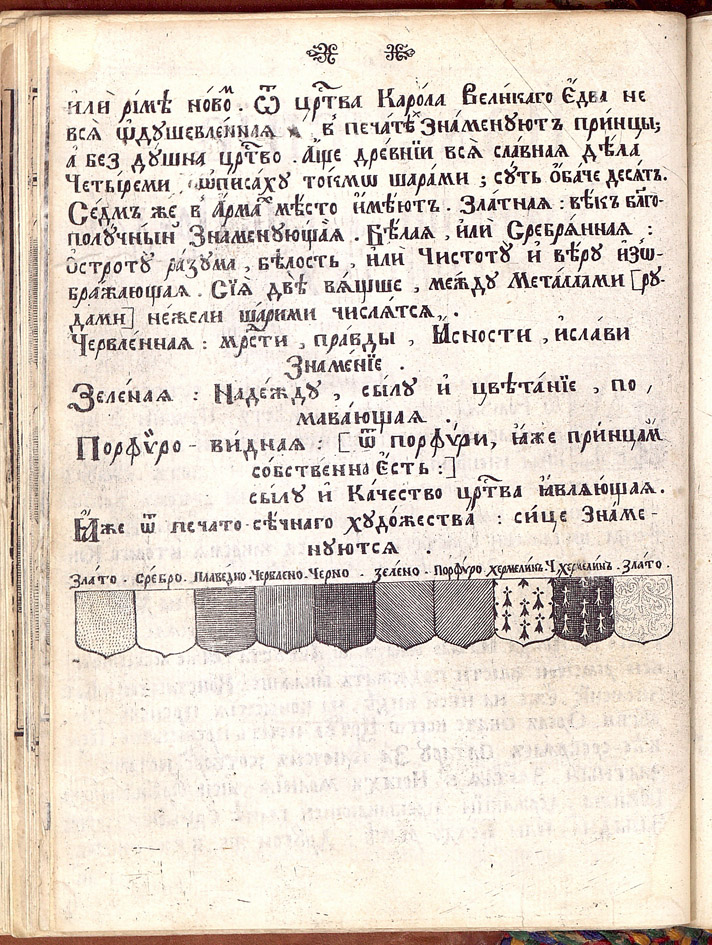 илѝ рі́мѣ но́во́м . Ѿ црⷭ҇тва Каро́ла Вели́каго Є҆́два не
всѧ̑ ѡ҆душевле́ннаѧ в̾ печа́тѣх Зна́менуютъ при́нцы;
а҆ без дꙋ́шна црⷭ҇тво . А҆́ще дре́внїи всѧ̑ сла́внаѧ дѣ́ла
Четы́реми ѡ҆писа́хꙋ то́кмѡ шара́ми ; сꙋ́ть ѻ҆́баче де́сѧть.
Се́дмъ же в̾ А҆́рма́х мѣ́сто и҆мѣ́ютъ . Зла́тнаѧ : вѣ́къ бл҃го-
полꙋ́чныи Зна́менꙋющаѧ . Бѣ́лаѧ , и҆лѝ Сребрѧ́ннаѧ :
ѻ҆стротꙋ̀ ра́зꙋма , бѣ́лость , и҆лѝ Чистотꙋ̀ и҆ вѣ́рꙋ и҆зѡ-
бража́ющаѧ . Сїѧ̑ двѣ̀ вѧ́щше , ме́ждꙋ Мета́ллами [рꙋ-
да́ми] не́жели ша́рими числѧ́тсѧ .
Червле́ннаѧ : мрⷭ҇ти , пра́вды , Ꙗ҆́сности , и҆ сла́ви
Зна́менїе .
Зеле́наѧ : Наде́ждꙋ , сы́лꙋ и҆ цвѣта́нїе , по ,
мава́ющаѧ .
Порфѵ́ро - ви́днаѧ : [ ѿ порфѵ́ри, ꙗ҆́же при́нцам
со́бственно Є҆́сть :]
сы́лꙋ и҆ Ка́чество црⷭ҇тва ꙗ҆влѧ́ющаѧ .
Ꙗ҆́же ѿ печато-сѣ́чнаго хꙋдо́жества : си́це Зна́ме -
нꙋютсѧ .
Зла́то . Сре́бро . Плаве́дно . Червлено . Че́рно . зеле́но . Порфѵ́ро Хермели́нъ . Ч Хермели́нъ . Зла́то .